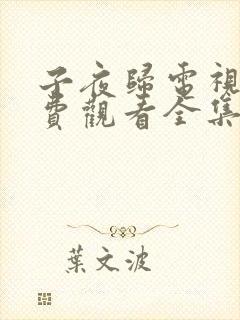 子夜歸電視
費觀看全集
葉文波